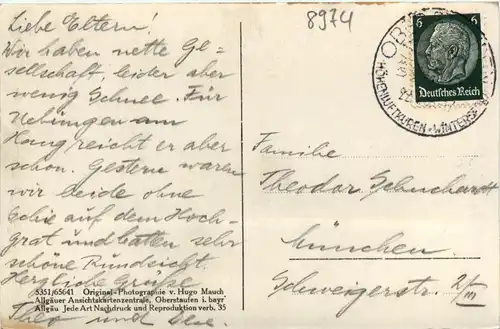 Liebe Eltern!
Wir haben nette Ge-
sellschaft, leider aber
wenig Schnee. Für
Uebungen am
Hang reicht er aber
schon. Gestern waren
wir beide ohne
Schie auf dem Hoch-
grat und hatten sehr
schöne Rundsicht.
Herzliche Grüße
Theo und
5351/65641 Original-Photographie v. Hugo Mauch
Allgäuer Ansichtskartenzentrale, Oberstaufen i. bayr.
Allgäu Jede Art Nachdruck und Reproduktion verb. 35
8974
6 6
Deutsches Reich
HÖHENLUFTKUREN · WINTERS
Familie
Theodor Schuchardt
München
Schweigerstr. 2/III